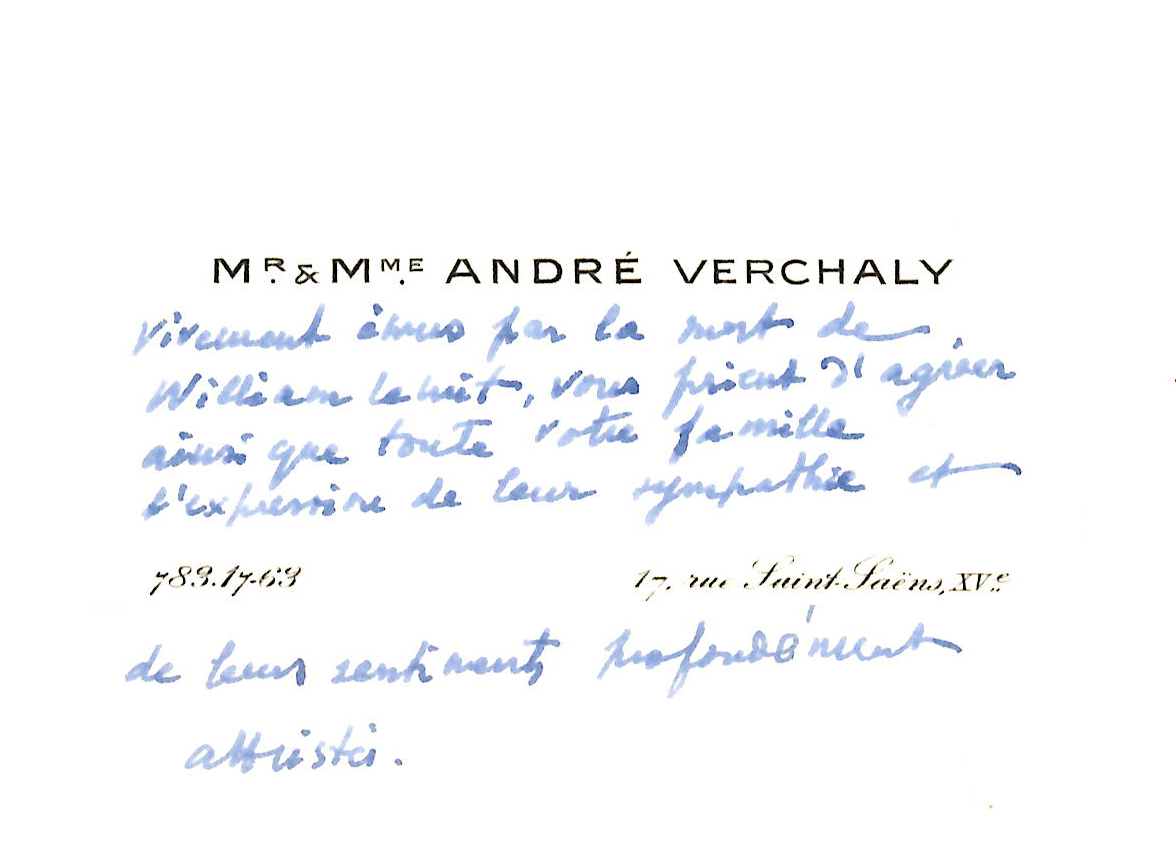 MR. & MME. ANDRÉ VERCHALY
Vivement émus par la mort de
William , vous prient d'agréer
ainsi que toute votre famille
l'expression de leur sympathie et
783.17-63 17, rue Saint-Saëns, XVe.
de leurs sentiments profondément
attristés.